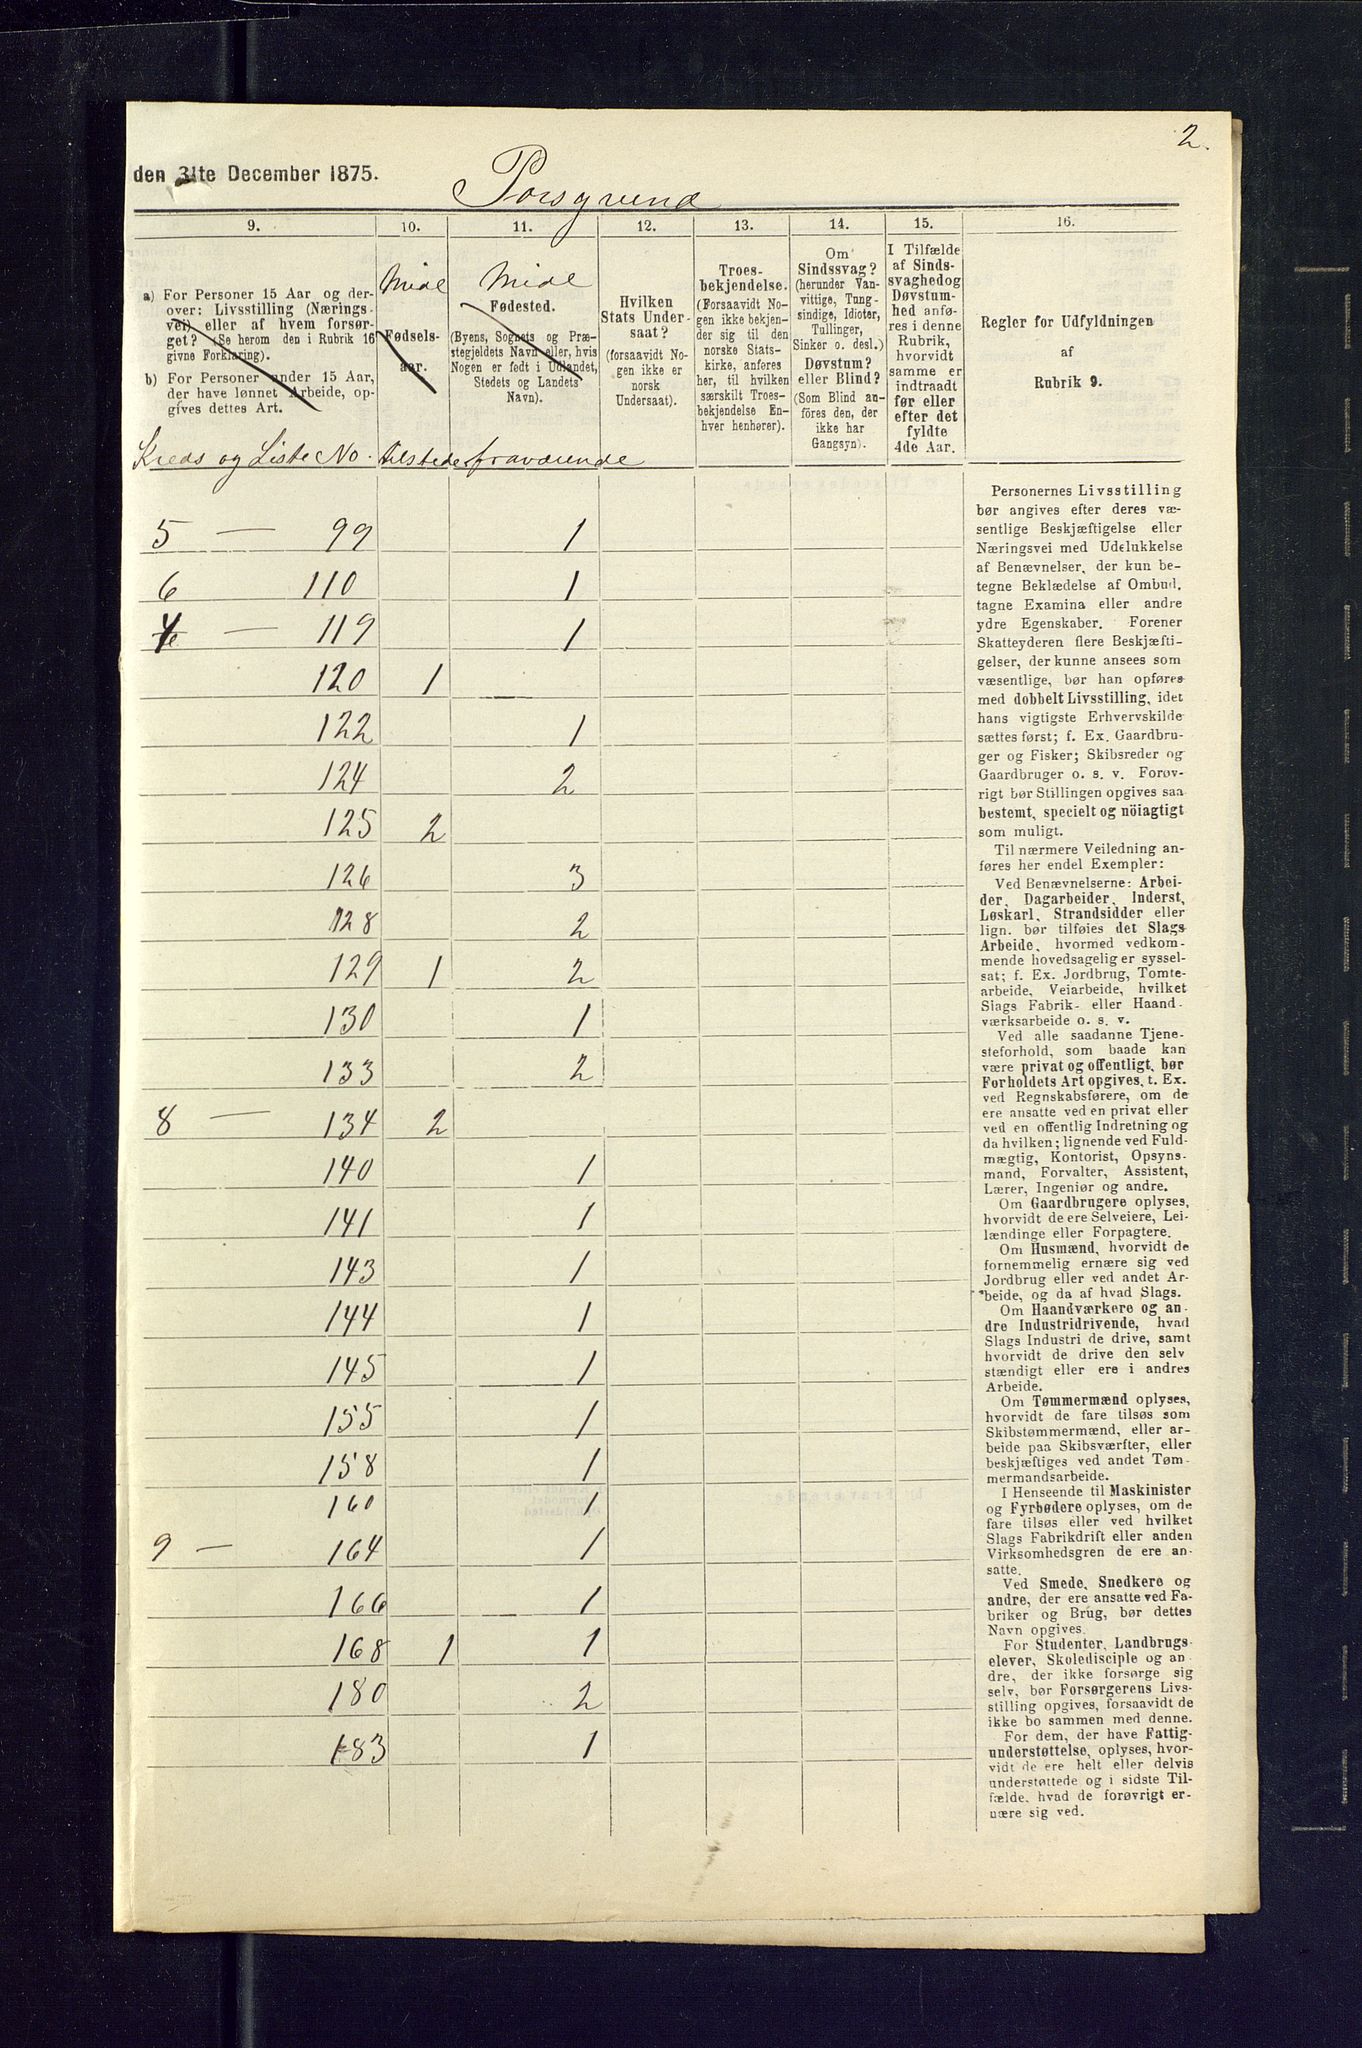 2.
den 31te December 1875.
Porsgrund
9. 10. 11. 12. 13. 14. 15. 16.
a) For Personer 15 Aar og der-
over: Livsstilling (Nærings-
vei) eller af hvem forsør-
get? (Se herom den i Rubrik 16
givne Forklaring).
b) For Personer under 15 Aar,
der have lønnet Arbeide, op-
gives dettes Art.
Midl
Fødsels-
aar.
Midl
Fødested.
(Byens, Sognets og Præ-
stegjeldets Navn eller, hvis
Nogen er født i Udlandet,
Stedets og Landets
Navn).
Hvilken
Stats Under-
saat?
(forsaavidt No-
gen ikke er
norsk
Undersaat).
Troes-
bekjendelse.
(Forsaavidt No-
gen ikke bekjen-
der sig til den
norske Stats-
kirke, anføres
her, til hvilken
særskilt Troes-
bekjendelse En-
hver henhører).
Om
Sindssvag?
(herunder Van-
vittige, Tung-
sindige, Idioter,
Tullinger,
Sinker o. desl.)
Døvstum?
eller Blind?
(Som Blind an-
föres den, der
ikke har
Gangsyn).
I Tilfælde
af Sinds-
svaghed og
Døvstum-
hed anfø-
res i denne
Rubrik,
hvorvidt
samme er
indtraadt
før eller
efter det
fyldte
4de Aar.
Regler for Udfyldningen
af
Rubrik 9.
Kreds og Liste No. tilstede fraværende
5 — 99 1
6 110 1
— 119 1
120 1
122 1
124 2
125 2
126 3
128 2
129 1 2
130 1
133 2
8 — 134 2
140 1
141 1
143 1
144 1
145 1
155 1
158 1
160 1
9 — 164 1
166 1
168 1 1
180 2
183 1
Personernes Livsstilling
bør angives efter deres væ-
sentlige Beskjæftigelse eller
Næringsvei med Udelukkelse
af Benævnelser, der kun be-
tegne Beklædelse af Ombud,
tagne Examina eller andre
ydre Egenskaber. Forener
Skatteyderen flere Beskjæfti-
gelser, der kunne ansees som
væsentlige, bør han opføres
med dobbelt Livsstilling, idet
hans vigtigste Erhvervskilde
sættes først; f. Ex. Gaardbru-
ger og Fisker; Skibsreder og
Gaardbruger o. s. v. Forøv-
rigt bør Stillingen opgives saa
bestemt, specielt og nöiagtigt
som muligt.
Til nærmere Veiledning an-
føres her endel Exempler:
Ved Benævnelserne: Arbei-
der, Dagarbeider, Inderst,
Løskarl, Strandsidder eller
lign. bør tilføies det Slags
Arbeide, hvormed vedkom-
mende hovedsagelig er syssel-
sat; f. Ex. Jordbrug, Tomte-
arbeide, Veiarbeide, hvilket
Slags Fabrik- eller Haand-
værksarbeide o. s. v.
Ved alle saadanne Tjene-
steforhold, som baade kan
være privat og offentligt, bør
Forholdets Art opgives, t. Ex.
ved Regnskabsførere, om de
ere ansatte ved en privat eller
ved en offentlig Indretning og
da hvilken; lignende ved Fuld-
mægtig, Kontorist, Opsyns-
mand, Forvalter, Assistent,
Lærer, Ingeniør og andre.
Om Gaardbrugere oplyses,
hvorvidt de ere Selveiere, Lei-
lændinge eller Forpagtere.
Om Husmænd, hvorvidt de
fornemmelig ernære sig ved
Jordbrug eller ved andet Ar-
beide, og da af hvad Slags.
Om Haandværkere og an-
dre Industridrivende, hvad
Slags Industri de drive, samt
hvorvidt de drive den selv
stændigt eller ere i andres
Arbeide.
Om Tømmermænd oplyses,
hvorvidt de fare tilsøs som
Skibstømmermænd, eller ar-
beide paa Skibsværfter, eller
beskjæftiges ved andet Tøm-
mermandsarbeide.
I Henseende til Maskinister
og Fyrbødere oplyses, om de
fare tilsøs eller ved hvilket
Slags Fabrikdrift eller anden
Virksomhedsgren de ere an-
satte.
Ved Smede, Snedkere og
andre, der ere ansatte ved Fa-
briker og Brug, bør dettes
Navn opgives.
For Studenter, Landbrugs-
elever, Skoledisciple og an
dre, der ikke forsørge sig
selv, bør Forsørgerens Livs-
stilling opgives, forsaavidt de
ikke bo sammen med denne.
For dem, der have Fattig-
understøttelse, oplyses, hvor-
vidt de ere helt eller delvis
understøttede og i sidste Til-
fælde, hvad de forøvrigt er-
nære sig ved.